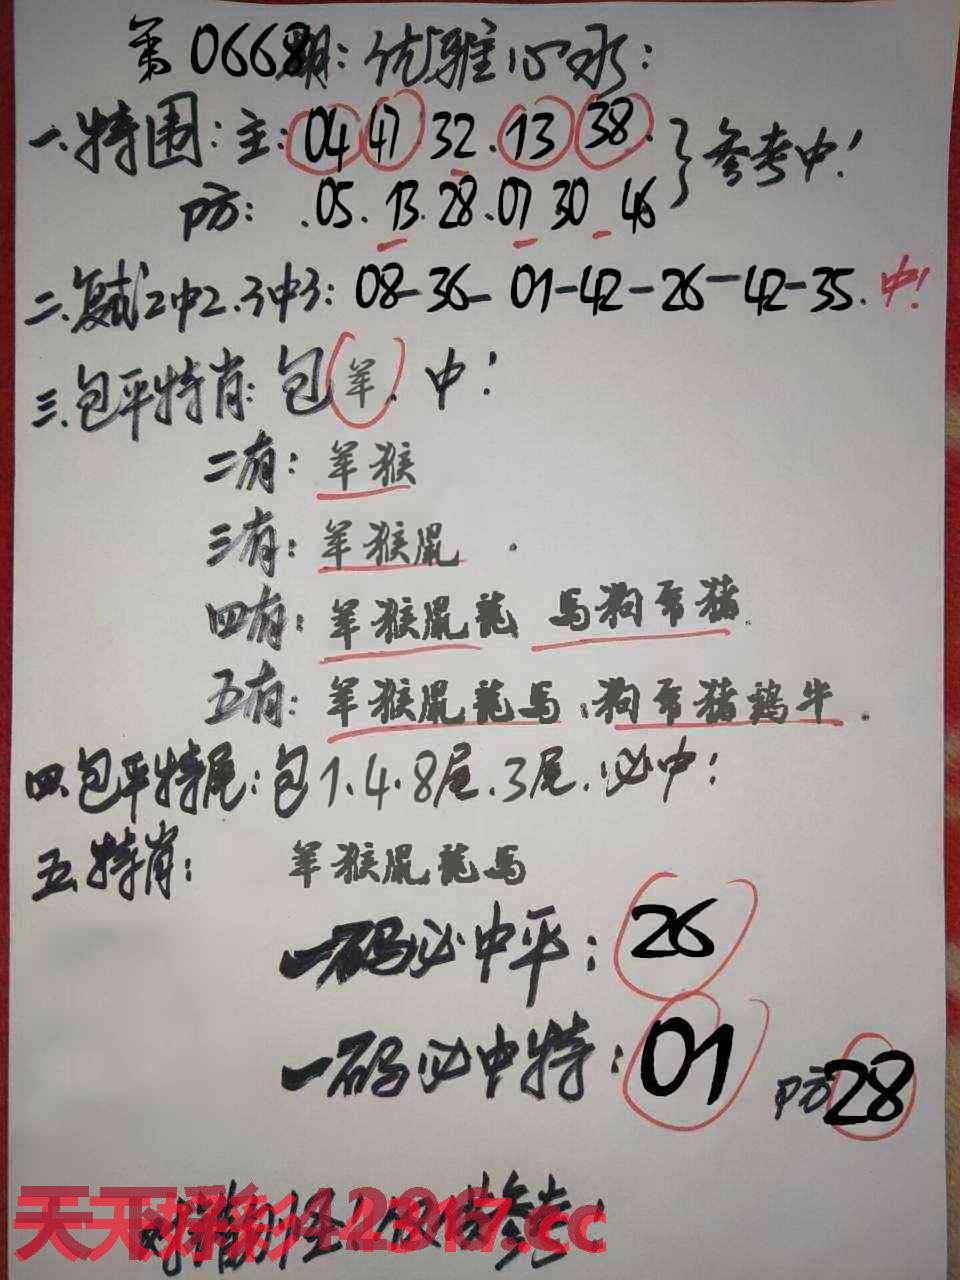 第0668期:优雅心水:
一.特围:主:04 47 32.13 38.}参考中!
防:.05.13.28.07 30 46
二.复试2中2.3中3:08-36-01-42-26-42-35.中!
三.包平特肖:包羊.中!
二有:羊猴
三有:羊猴鼠.
四有:羊猴鼠龍 马狗兔猪.
五有:羊猴鼠龍马.狗兔猪鸡牛.
四.包平特尾:包1.4.8尾.3尾.必中!
五.特肖:羊猴鼠龍马
一码必中平:26
一码必中特:01 防28
天天彩 .cc